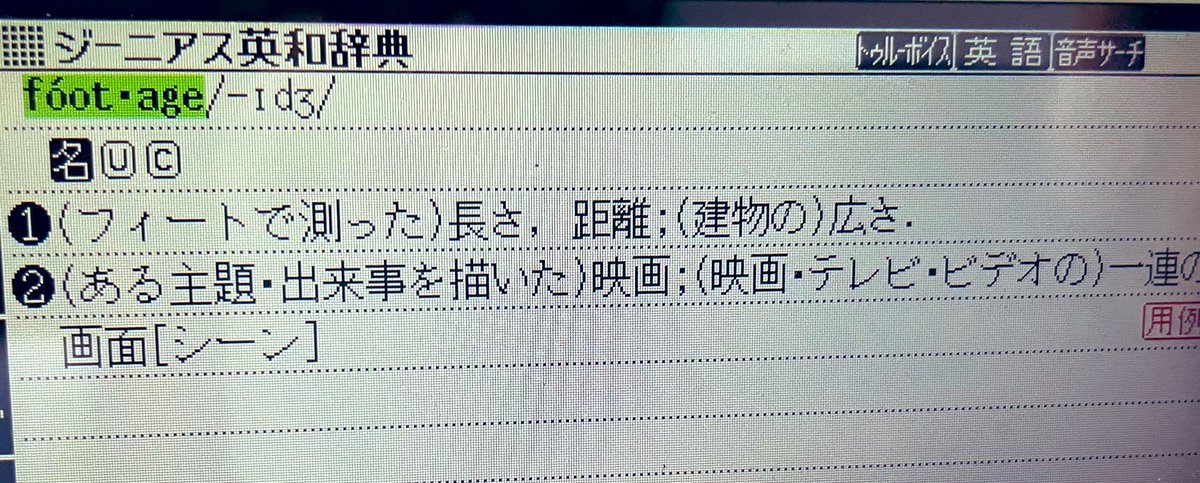 ジーニアス英和辞典 トゥルーボイス 英語 音声サーチ
fóot・age/-ɪdʒ/
名 U C
❶(フィートで測った)長さ, 距離;(建物の)広さ.
❷(ある主題・出来事を描いた)映画;(映画・テレビ・ビデオの)一連の
画面[シーン] 用例